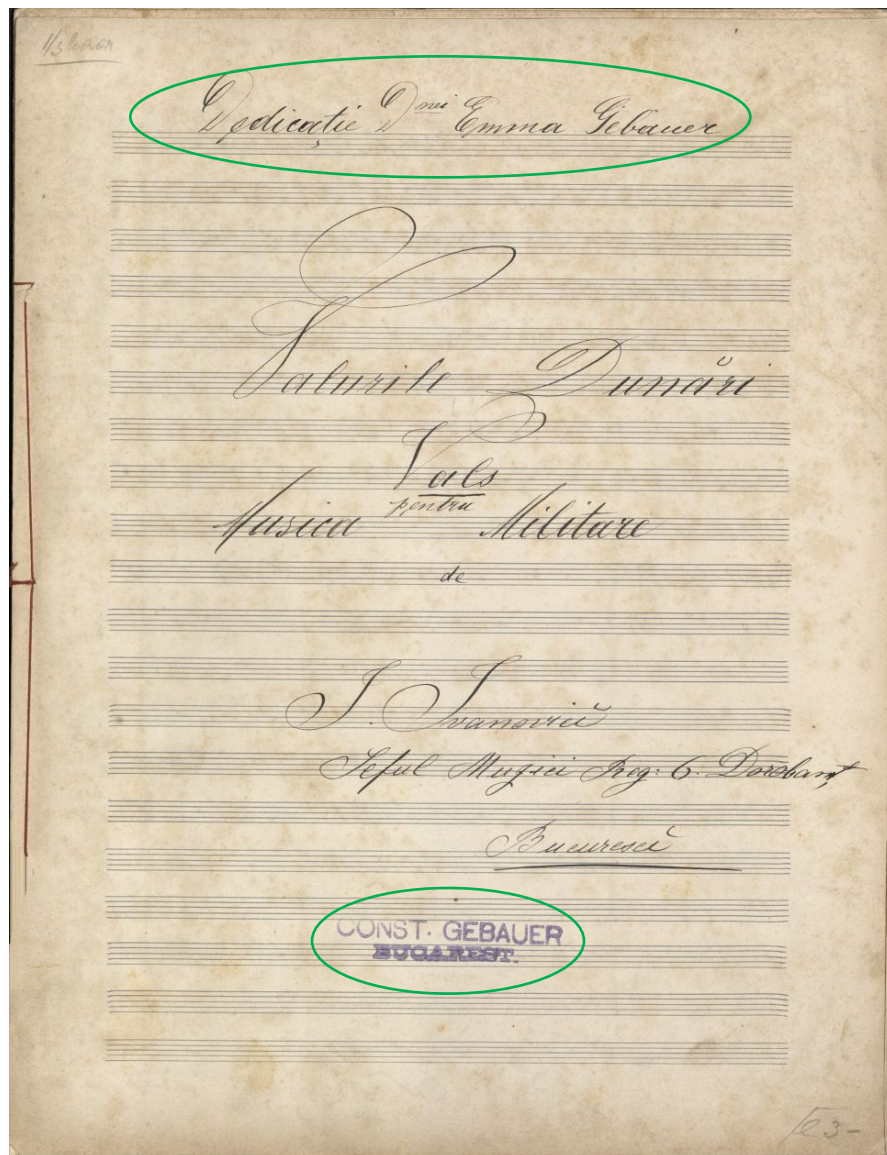 Dedicație Dnei Emma Gebauer
Valurile Dunări
Vals
pentru
Musica Militare
de
I. Ivanovici
Seful Muzici Reg: 6. Dorobanț
Bucuresci
CONST. GEBAUER
BUCAREST.